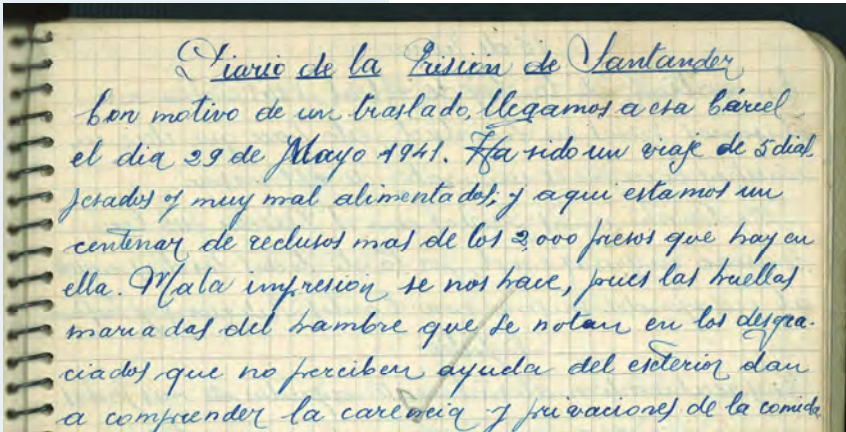 Diario de la Prision de Santander
Con motivo de un traslado, llegamos a esa Cárcel
el dia 29 de Mayo 1941. Ha sido un viaje de 5 dias,
pesados y muy mal alimentados, y aqui estamos un
centenar de reclusos mas de los 2,000 presos que hay en
ella. Mala impresión se nos hace, pues las huellas
marcadas del hambre que se notan en los desgra-
ciados que no perciben ayuda del exterior dan
a comprender la carencia y privaciones de la comida